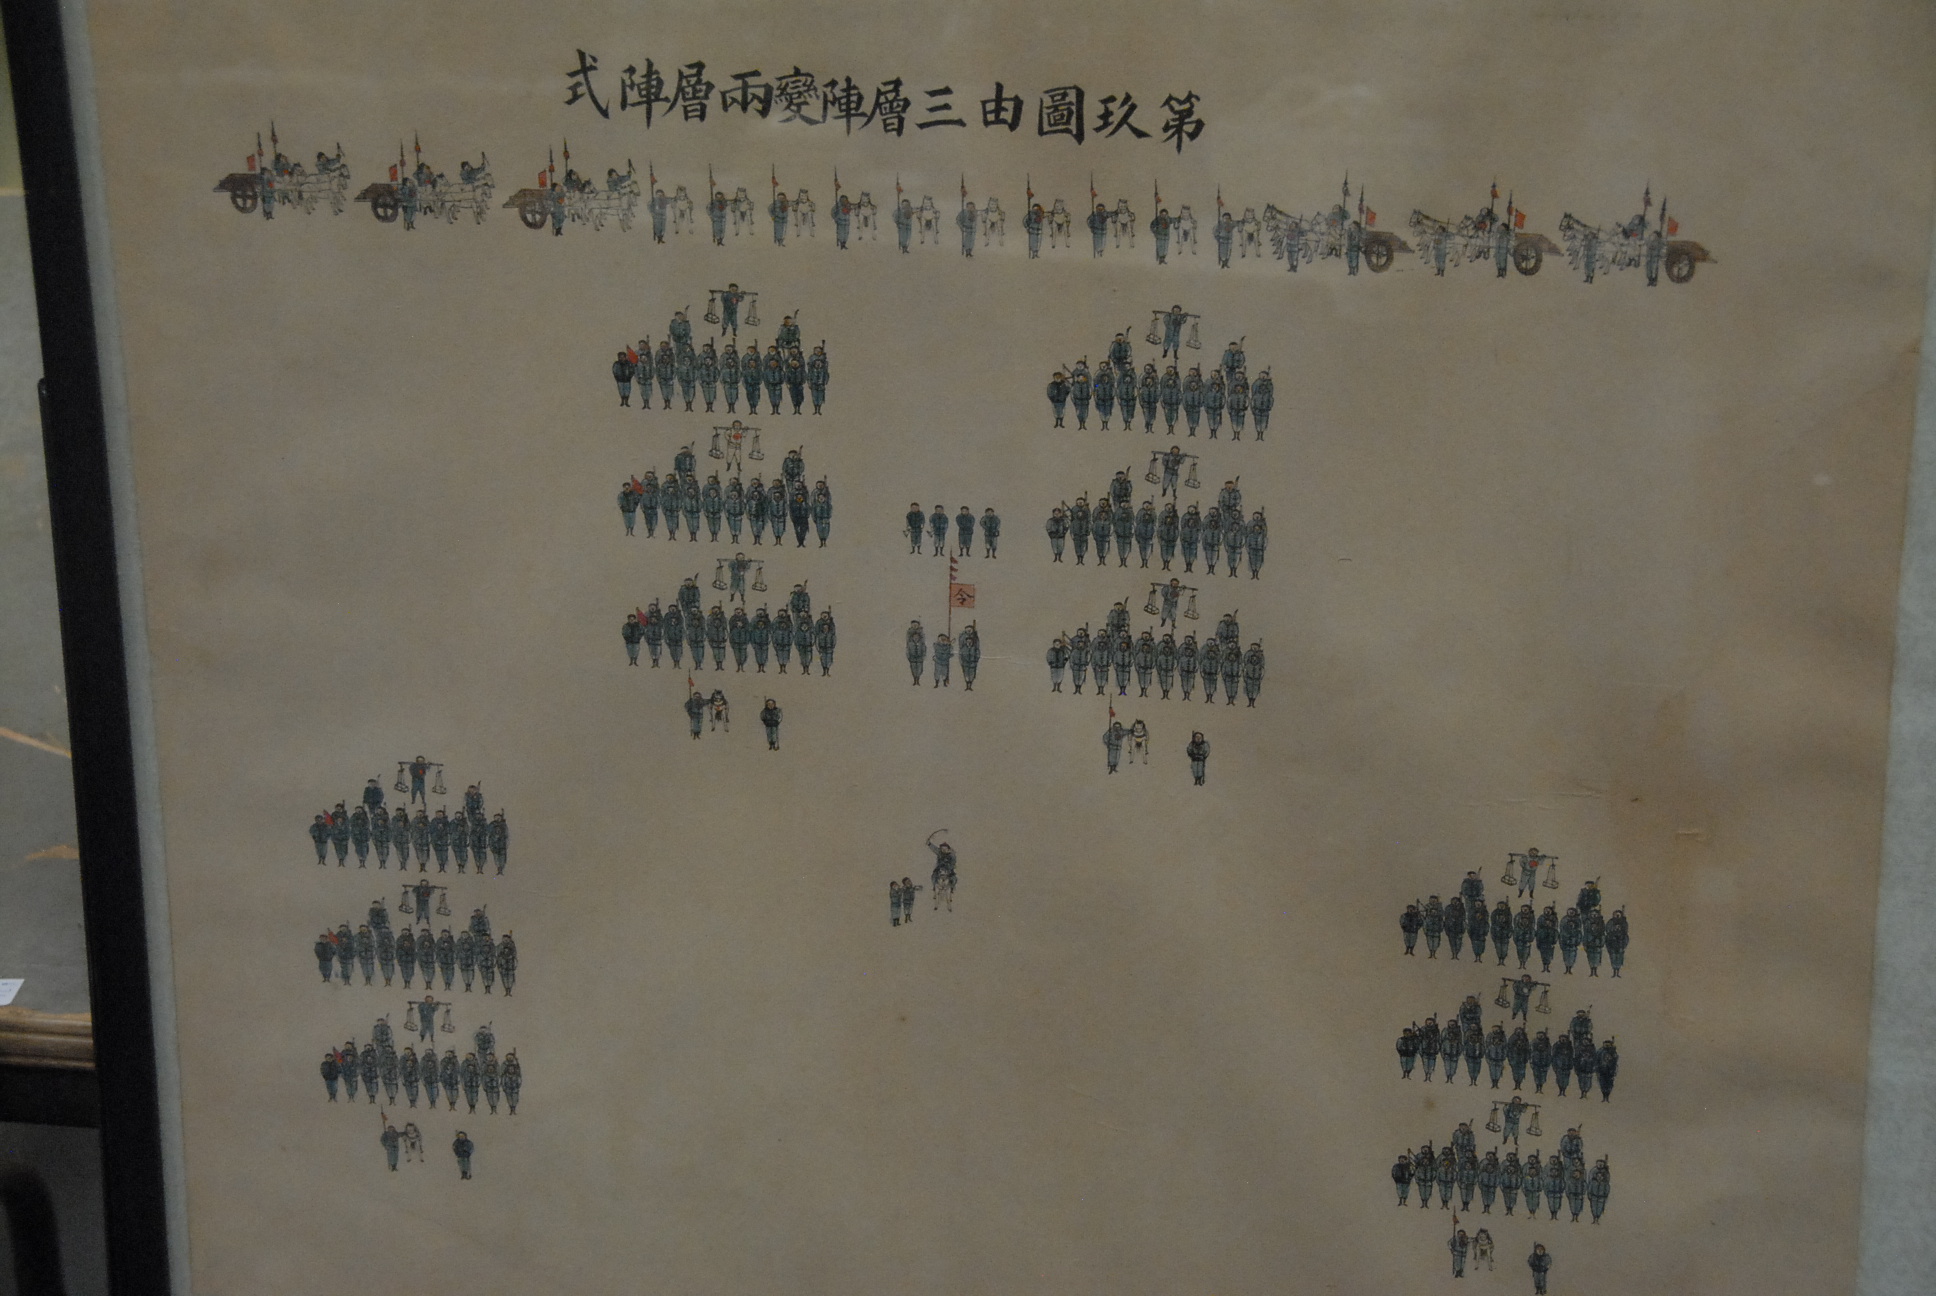 第玖圖由三層陣變兩層陣式
令